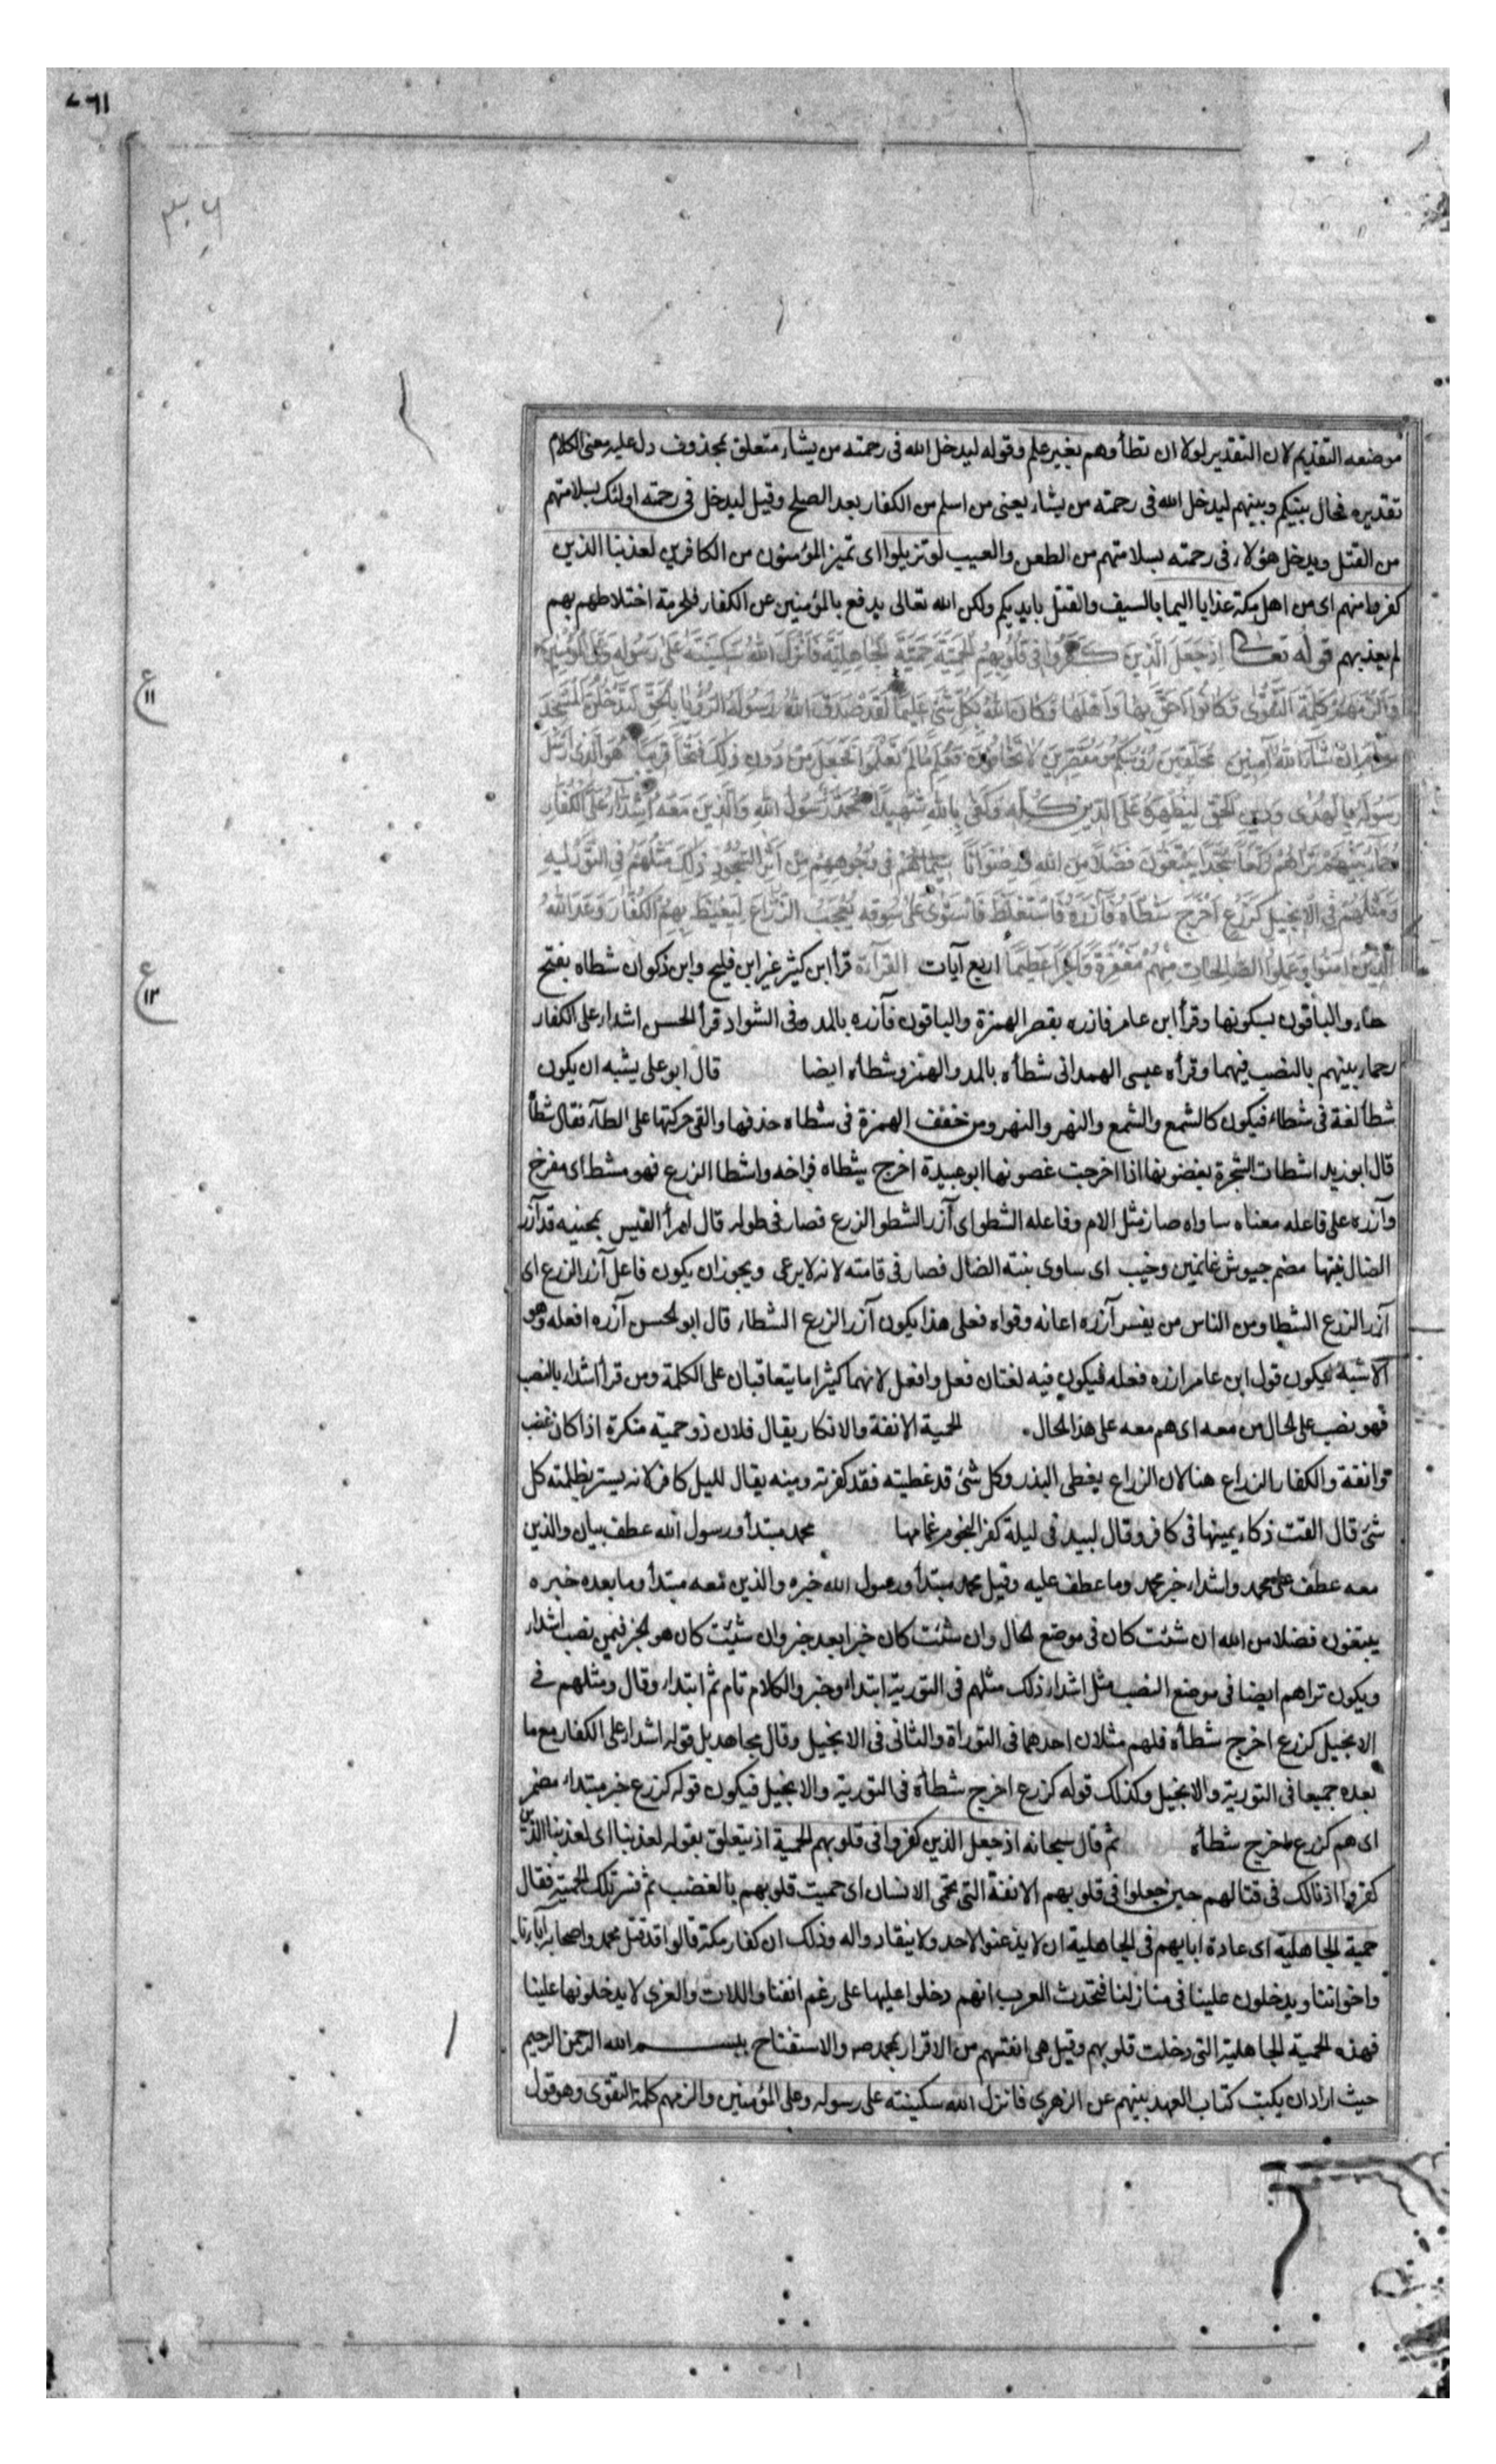 موضعه التقديم لان التقدير لولا ان تطأوهم بغير علم وقوله ليدخل الله فى رحمته من يشاء متعلق بمحذوف دل عليه معنى الكلام
تقديره فحال بينكم وبينهم ليدخل الله فى رحمته من يشاء يعنى من اسلم من الكفار بعد الصلح وقيل ليدخل فى رحمته اولئك بسلامتهم
من القتل ويدخل هؤلاء فى رحمته بسلامتهم من الطعن والعيب لو تزيلوا اى تميز المؤمنون من الكافرين لعذبنا الذين
كفروا منهم اى من اهل مكة عذابا اليما بالسيف والقتل بايديكم ولكن الله تعالى يدفع بالمؤمنين عن الكفار فلحرمة اختلاطهم بهم
لم يعذبهم قوله تعالى اِذ جَعَلَ الَّذينَ كَفَرُوا فى قُلُوبِهِمُ الحَمِيَّةَ حَمِيَّةَ الجاهِلِيَّةِ فَاَنزَلَ اللهُ سَكينَتَهُ عَلى رَسُولِهِ وَعَلَى المُؤمِنينَ
وَاَلزَمَهُم كَلِمَةَ التَّقوى وَكانُوا اَحَقَّ بِها وَاَهلَها وَكانَ اللهُ بِكُلِّ شَئٍ عَليمًا لَقَد صَدَقَ اللهُ رَسُولَهُ الرُّؤيا بِالحَقِّ لَتَدخُلُنَّ المَسجِدَ
الحرام اِن شاءَ اللهُ آمِنينَ مُحَلِّقينَ رُؤسَكُم وَمُقَصِّرينَ لا تَخافُونَ فَعَلِمَ ما لَم تَعلَمُوا فَجَعَلَ مِن دُونِ ذلِكَ فَتحًا قَريبًا هُوَ الَّذى اَرسَلَ
رَسُولَهُ بِالهُدى وَدينِ الحَقِّ لِيُظهِرَهُ عَلَى الدّينِ كُلِّهِ وَكَفى بِاللهِ شَهيدًا مُحَمَّدٌ رَسُولُ اللهِ وَالَّذينَ مَعَهُ اَشِدّاءُ عَلَى الكُفّارِ
رُحَماءُ بَينَهُم تَراهُم رُكَّعًا سُجَّدًا يَبتَغُونَ فَضلًا مِنَ اللهِ وَرِضوانًا سيماهُم فى وُجُوهِهِم مِن اَثَرِ السُّجُودِ ذلِكَ مَثَلُهُم فِى التَّورٰيةِ
وَمَثَلُهُم فِى الاِنجيلِ كَزَرعٍ اَخرَجَ شَطأَهُ فَآزَرَهُ فَاستَغلَظَ فَاستَوى عَلى سُوقِهِ يُعجِبُ الزُّرّاعَ لِيَغيظَ بِهِمُ الكُفّارَ وَعَدَ اللهُ
الَّذينَ امَنُوا وَعَمِلُوا الصّالِحاتِ مِنهُم مَغفِرَةً وَاَجرًا عَظيمًا اربع آيات القراءة قرأ ابن كثير غير ابن فليح وابن ذكوان شطاه بفتح
طاء والباقون بسكونها وقرأ ابن عامر فازره بقصر الهمزة والباقون فآزره بالمد وفى الشواد قرأ الحسن اشداء على الكفار
رحماء بينهم بالنصب فيهما وقرأه عيسى الهمدانى شطأه بالمد والهمز وشطأه ايضا قال ابو على يشبه ان يكون
شطأ لغة فى شطاء فيكون كالشمع والشمع والنهر والنهر ومن خفف الهمزة فى شطاه حذفها والقى حركتها على الطآء فقال شطأ
قال ابو زيد اشطات الشجرة بغصونها اذا اخرجت غصونها ابو عبيدة اخرج شطاه فراخه واشطا الزرع فهو مشطا اى مفرخ
وآزره على فاعله معناه ساواه صار مثل الام وفاعله الشطو اى آزر الشطو الزرع فصار فى طوله قال امرأ القيس بمحنية قد آزر
الضال نبتها مضم جيوش غانمين وخيب اى ساوى نبته الضال فصار فى قامته لانه لا يرعى ويجوز ان يكون فاعل آزر الزرع اى
آزر الزرع الشطا ومن الناس من يفسر آزره اعانه وقواه فعلى هذا يكون آزر الزرع الشطاء قال ابو الحسن آزره افعله وهو
الاشبه فيكون قول ابن عامر ازره فعله فيكون فيه لغتان فعل وافعل لانهما كثيرا ما يتعاقبان على الكلمة ومن قرأ اشداء بالنصب
فهو نصب على الحال من معه اى هم معه على هذا الحال. الحمية الانفة والانكار يقال فلان ذو حمية منكرة اذا كان ذا غضب
وانفة والكفار الزراع هنا لان الزراع يغطى البذر وكل شئ قد غطيته فقد كفرته ومنه يقال لليل كافر لانه يستر بظلمته كل
شئ قال القت ذكاء يمينها فى كافر وقال لبيد فى ليلة كفر النجوم غمامها محمد مبتدأ ورسول الله عطف بيان والذين
معه عطف على محمد واشداء خبر محمد وما عطف عليه وقيل محمد مبتدأ ورسول الله خبره والذين معه مبتدأ وما بعده خبره
يبتغون فضلا من الله ان شئت كان فى موضع الحال وان شئت كان خبرا بعد خبر وان شئت كان هو الخبر فيمن نصب اشداء
ويكون تراهم ايضا فى موضع النصب مثل اشداء ذلك مثلهم فى التورية ابتداء وخبر والكلام تام ثم ابتداء وقال ومثلهم فى
الانجيل كزرع اخرج شطأه فلهم مثلان احدهما فى التوراة والثانى فى الانجيل وقال مجاهد بل قوله اشداء على الكفار مع ما
بعده جميعا فى التورية والانجيل وكذلك قوله كزرع اخرج شطأه فى التورية والانجيل فيكون قوله كزرع خبر مبتداء مضمر
اى هم كزرع اخرج شطأه ثم قال سبحانه اذ جعل الذين كفروا فى قلوبهم الحمية اذ يتعلق بقوله لعذبنا اى لعذبنا الذين
كفروا اذ فى قتالهم حين جعلوا فى قلوبهم الانفة التى تحمى الانسان اى حميت قلوبهم بالغضب ثم فسر تلك الحمية فقال
حمية الجاهلية اى عادة ابايهم فى الجاهلية ان لا يذعنوا لاحد ولا ينقادوا له وذلك ان كفار مكة قالوا قد قتل محمد واصحابه آباءنا
واخواننا ويدخلون علينا فى منازلنا فتحدث العرب انهم دخلوا عليها على رغم انفنا واللات والعزى لا يدخلونها علينا
فهذه الحمية الجاهلية التى دخلت قلوبهم وقيل هى انفتهم من الاقرار لمحمد ص والاستفتاح ببسم الله الرحمن الرحيم
حيث اراد ان يكتب كتاب العهد بينهم عن الزهرى فانزل الله سكينته على رسوله وعلى المؤمنين والزمهم كلمة التقوى وهو قول
ع
١١
ع
١٢